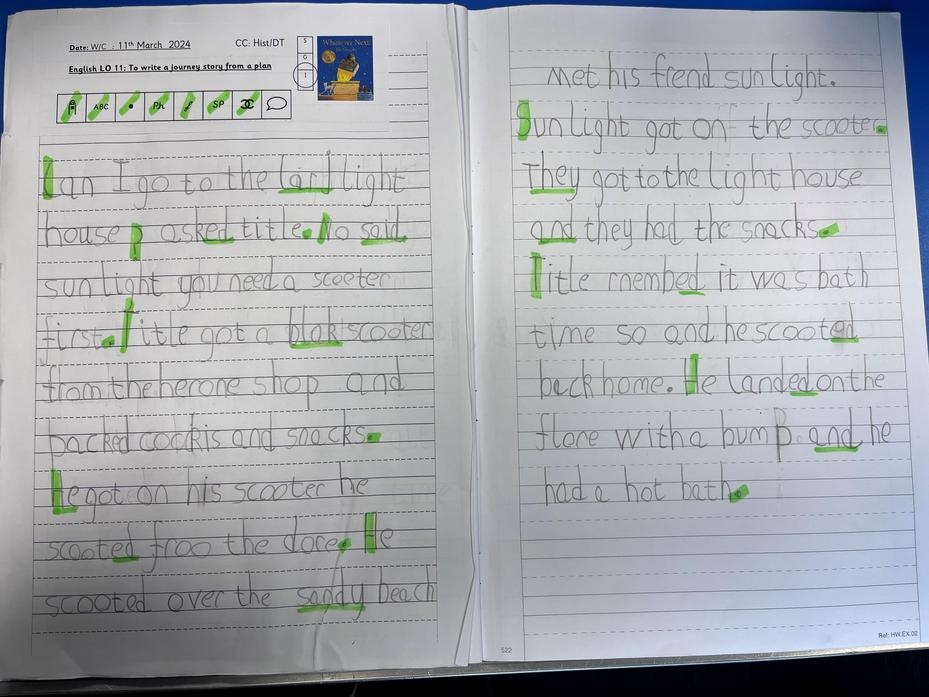 Date: W/C : 11th March 2024
CC: Hist/DT
English LO 11: To write a journey story from a plan
S
O
I
Whatever Next!
ABC
Ph
SP
Can I go to the tarl light
house? asked title. No said
sun light you need a scooter
first. Title got a blak scooter
from the herone shop and
packed cookis and snacks.
He got on his scooter he
scooted froo the dore. He
scooted over the sandy beach
met his frend sun light.
Sun light got on the scooter.
They got to the light house
and they had the snacks.
Title membed it was bath
time so and he scooted
back home. He landed on the
flore with a bump and he
had a hot bath.
522
Ref: HW.EX.02